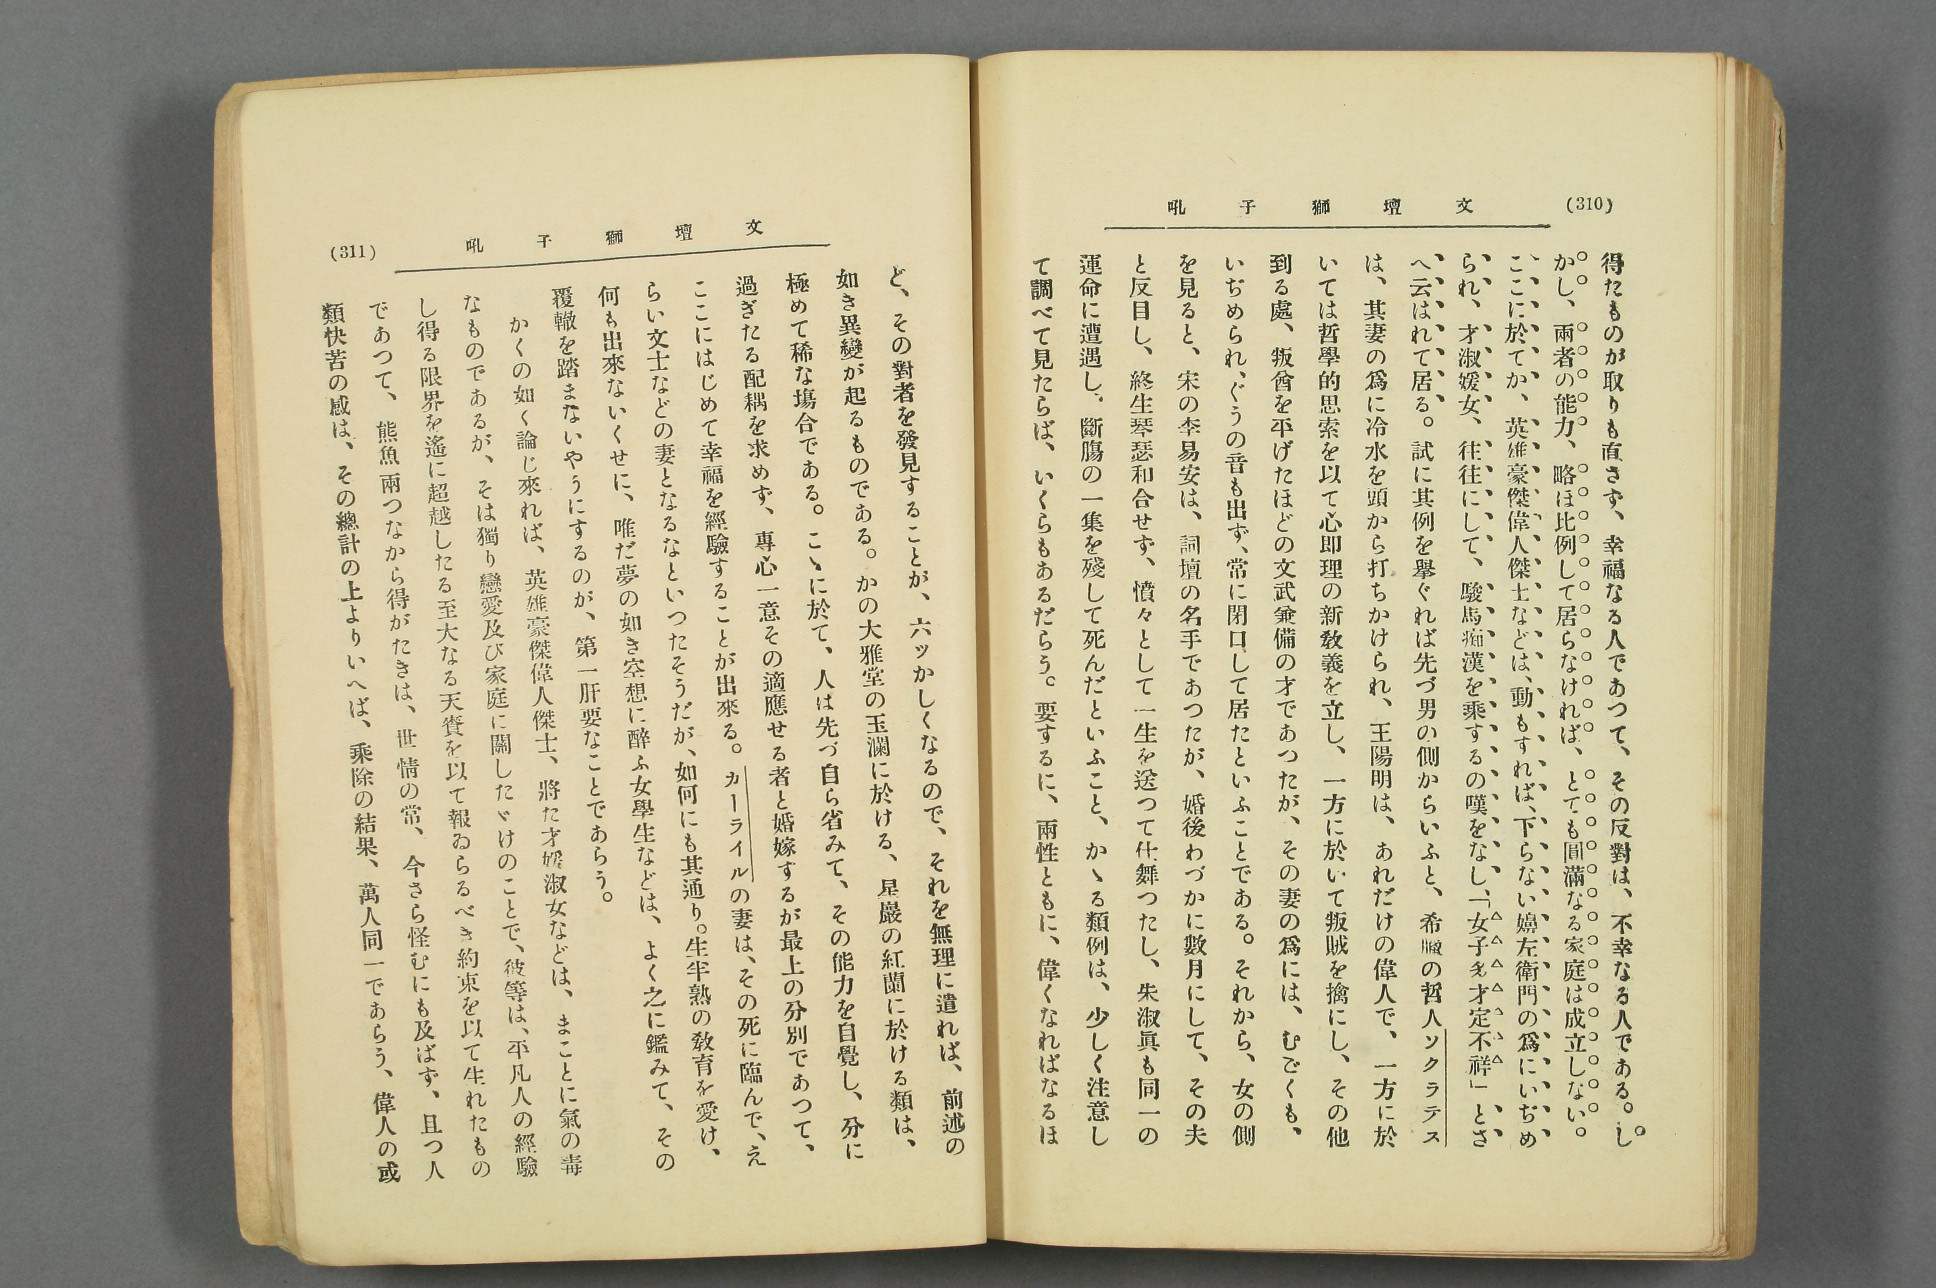 (310)
文壇獅子吼
得たものが取りも直さず、幸福なる人であつて、その反對は、不幸なる人である。し
かし、兩者の能力、略ほ比例して居らなければ、とても圓滿なる家庭は成立しない。
ここに於てか、英雄豪傑偉人傑士などは、動もすれば、下らない嬶左衛門の爲にいぢめ
られ、才淑媛女、往往にして、駿馬痴漢を乘するの嘆をなし、「女子多才定不祥」とさ
へ云はれて居る。試に其例を擧ぐれば先づ男の側からいふと、希臘の哲人ソクラテス
は、其妻の爲に冷水を頭から打ちかけられ、王陽明は、あれだけの偉人で、一方に於
いては哲學的思索を以て心即理の新敎義を立し、一方に於いて叛賊を擒にし、その他
到る處、叛酋を平げたほどの文武兼備の才であつたが、その妻の爲には、むごくも、
いぢめられ、ぐうの音も出ず、常に閉口して居たといふことである。それから、女の側
を見ると、宋の李易安は、詞壇の名手であつたが、婚後わづかに數月にして、その夫
と反目し、終生琴瑟和合せず、憤々として一生を送つて仕舞つたし、朱淑眞も同一の
運命に遭遇し、斷膓の一集を殘して死んだといふこと、かゝる類例は、少しく注意し
て調べて見たらば、いくらもあるだらう。要するに、兩性ともに、偉くなればなるほ
文壇獅子吼
(311)
ど、その對者を發見することが、六ッかしくなるので、それを無理に遣れば、前述の
如き異變が起るものである。かの大雅堂の玉瀾に於ける、星巖の紅蘭に於ける類は、
極めて稀な塲合である。こゝに於て、人は先づ自ら省みて、その能力を自覺し、分に
過ぎたる配耦を求めず、專心一意その適應せる者と婚嫁するが最上の分別であつて、
ここにはじめて幸福を經驗することが出來る。カーライルの妻は、その死に臨んで、え
らい文士などの妻となるなといつたそうだが、如何にも其通り。生半熟の敎育を愛け、
何も出來ないくせに、唯だ夢の如き空想に醉ふ女學生などは、よく之に鑑みて、その
覆轍を踏まないやうにするのが、第一肝要なことであらう。
かくの如く論じ來れば、英雄豪傑偉人傑士、將た才媛淑女などは、まことに氣の毒
なものであるが、そは獨り戀愛及び家庭に關したゞけのことで、彼等は、平凡人の經驗
し得る限界を遙に超越したる至大なる天賚を以て報ゐらるべき約束を以て生れたもの
であつて、熊魚兩つなから得がたきは、世情の常、今さら怪むにも及ばず、且つ人
類快苦の感は、その總計の上よりいへば、乘除の結果、萬人同一であらう、偉人の或